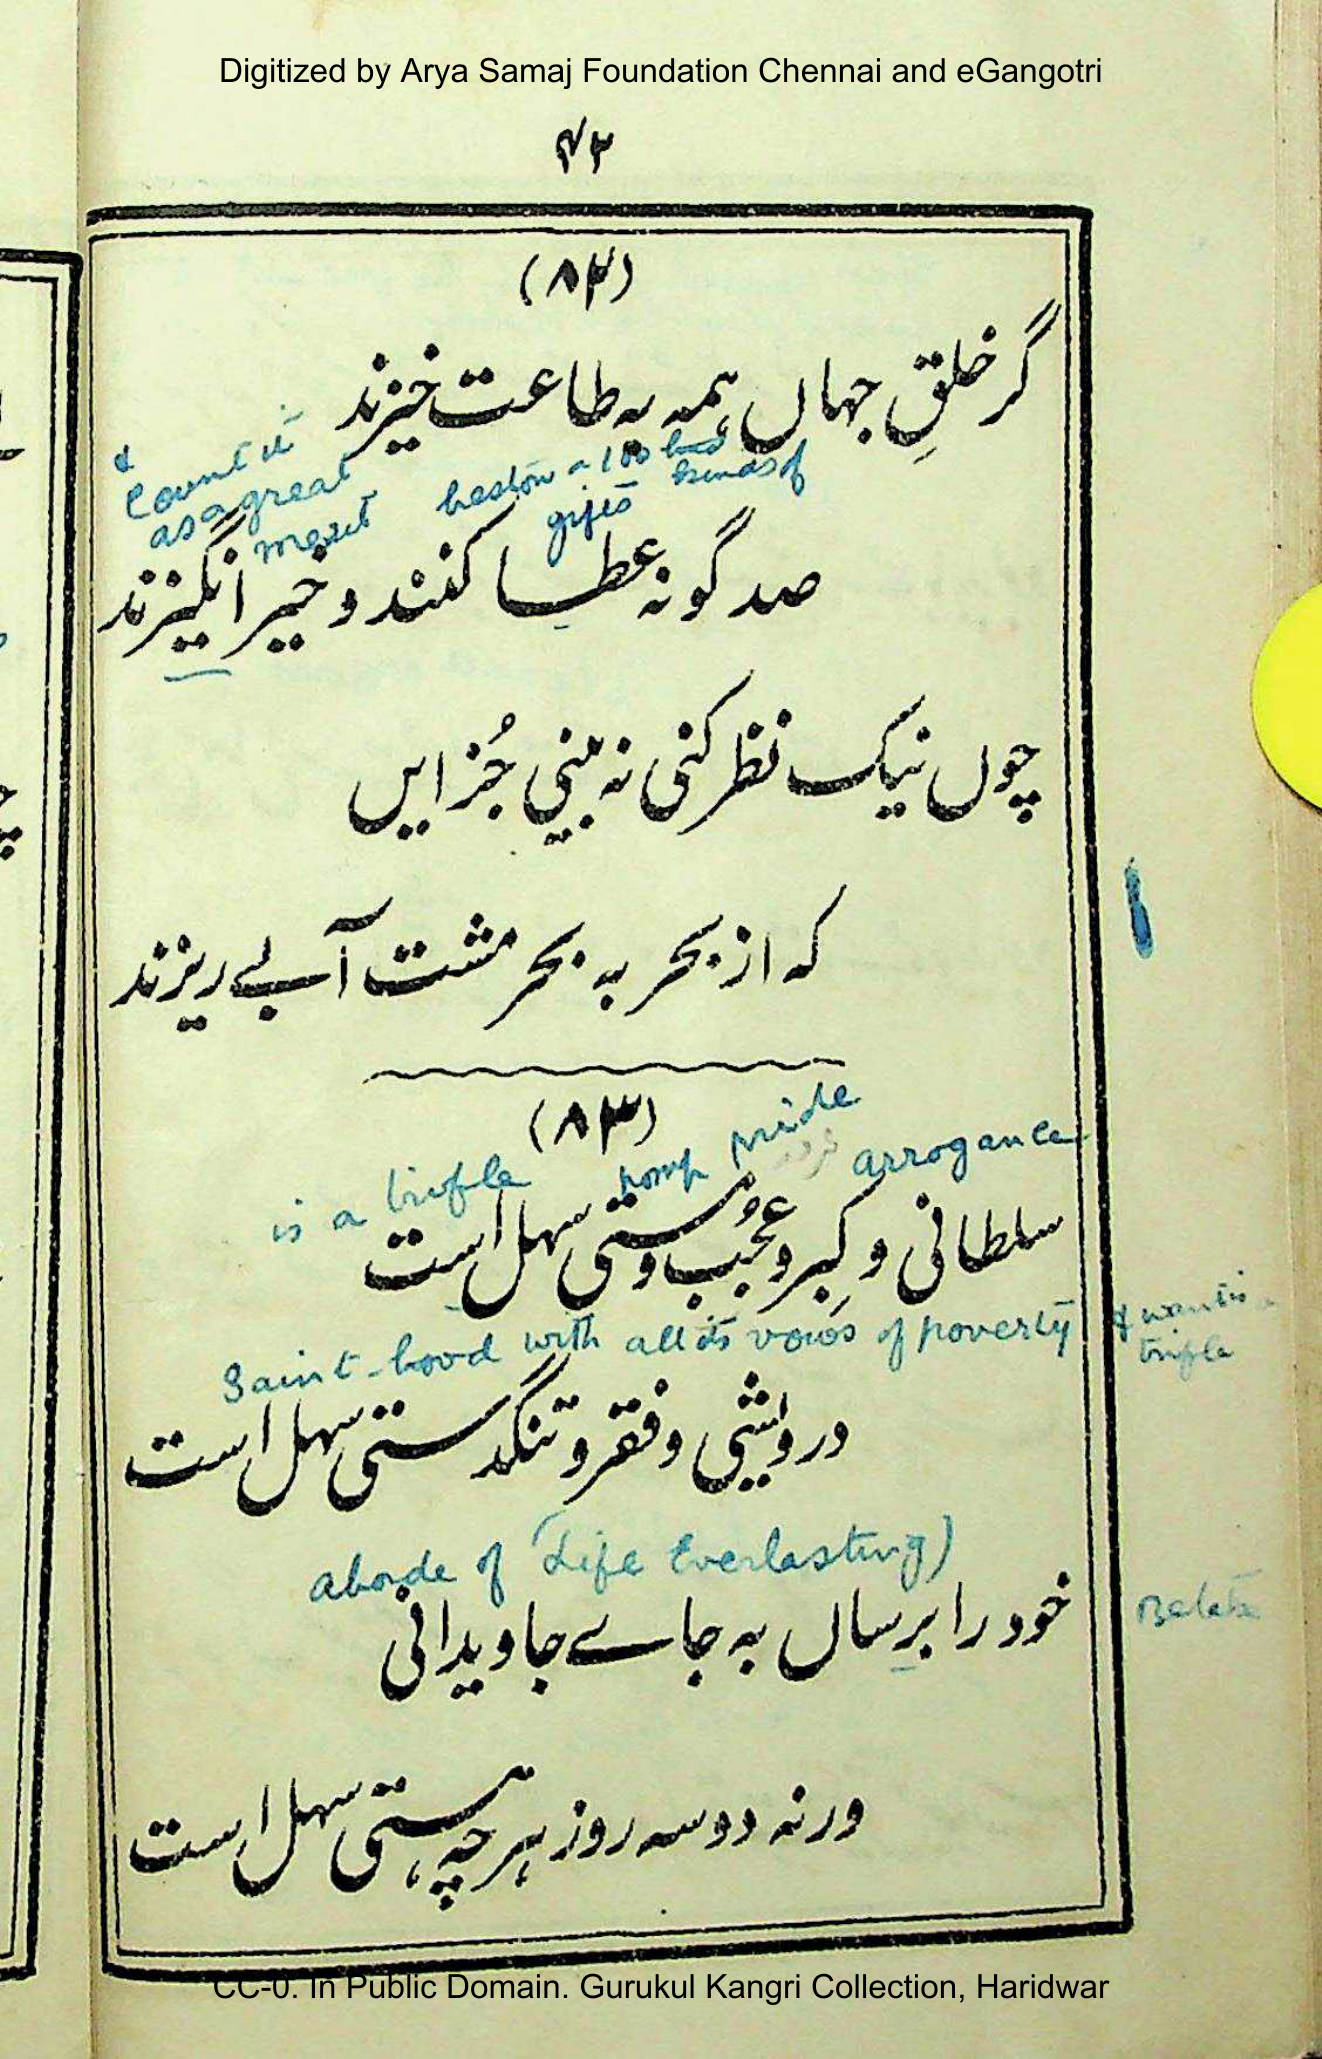 Digitized by Arya Samaj Foundation Chennai and eGangotri
۴۲
(۸۲)
گر خلقِ جہاں ہمہ بہ طاعت خیزند
& count it as a great merit
bestow a 100 kinds of gifts
صد گونہ عطا کنند و خیر انگیزند
چوں نیک نظر کنی نہ بینی جُز ایں
کہ از بحر بہ بحر مشت آبے ریزند
(۸۳)
is a trifle pomp pride arrogance
سلطانی و کِبر و عُجب و مستی سہل است
Saint-hood with all its vows of poverty & want is trifle
درویشی و فقر و تنگدستی سہل است
abode of (Life Everlasting)
خود را برِساں بہ جاے جاویدانی
ورنہ دو سہ روز ہر چہ ہستی سہل است
CC-0. In Public Domain. Gurukul Kangri Collection, Haridwar